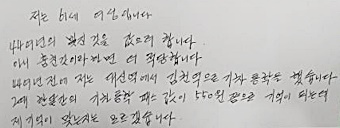 저는 61세 여성입니다
44여년의 빚진 것을 갚으려 합니다.
아니 훔친것이라 하면 더 적당합니다
44여년전에 저는 대신역에서 김천역으로 기차 통학을 했습니다
그때 한달간의 기차통학 패스 값이 550원 정도로 기억이 되는데
제 기억이 맞는지는 모르겠습니다.